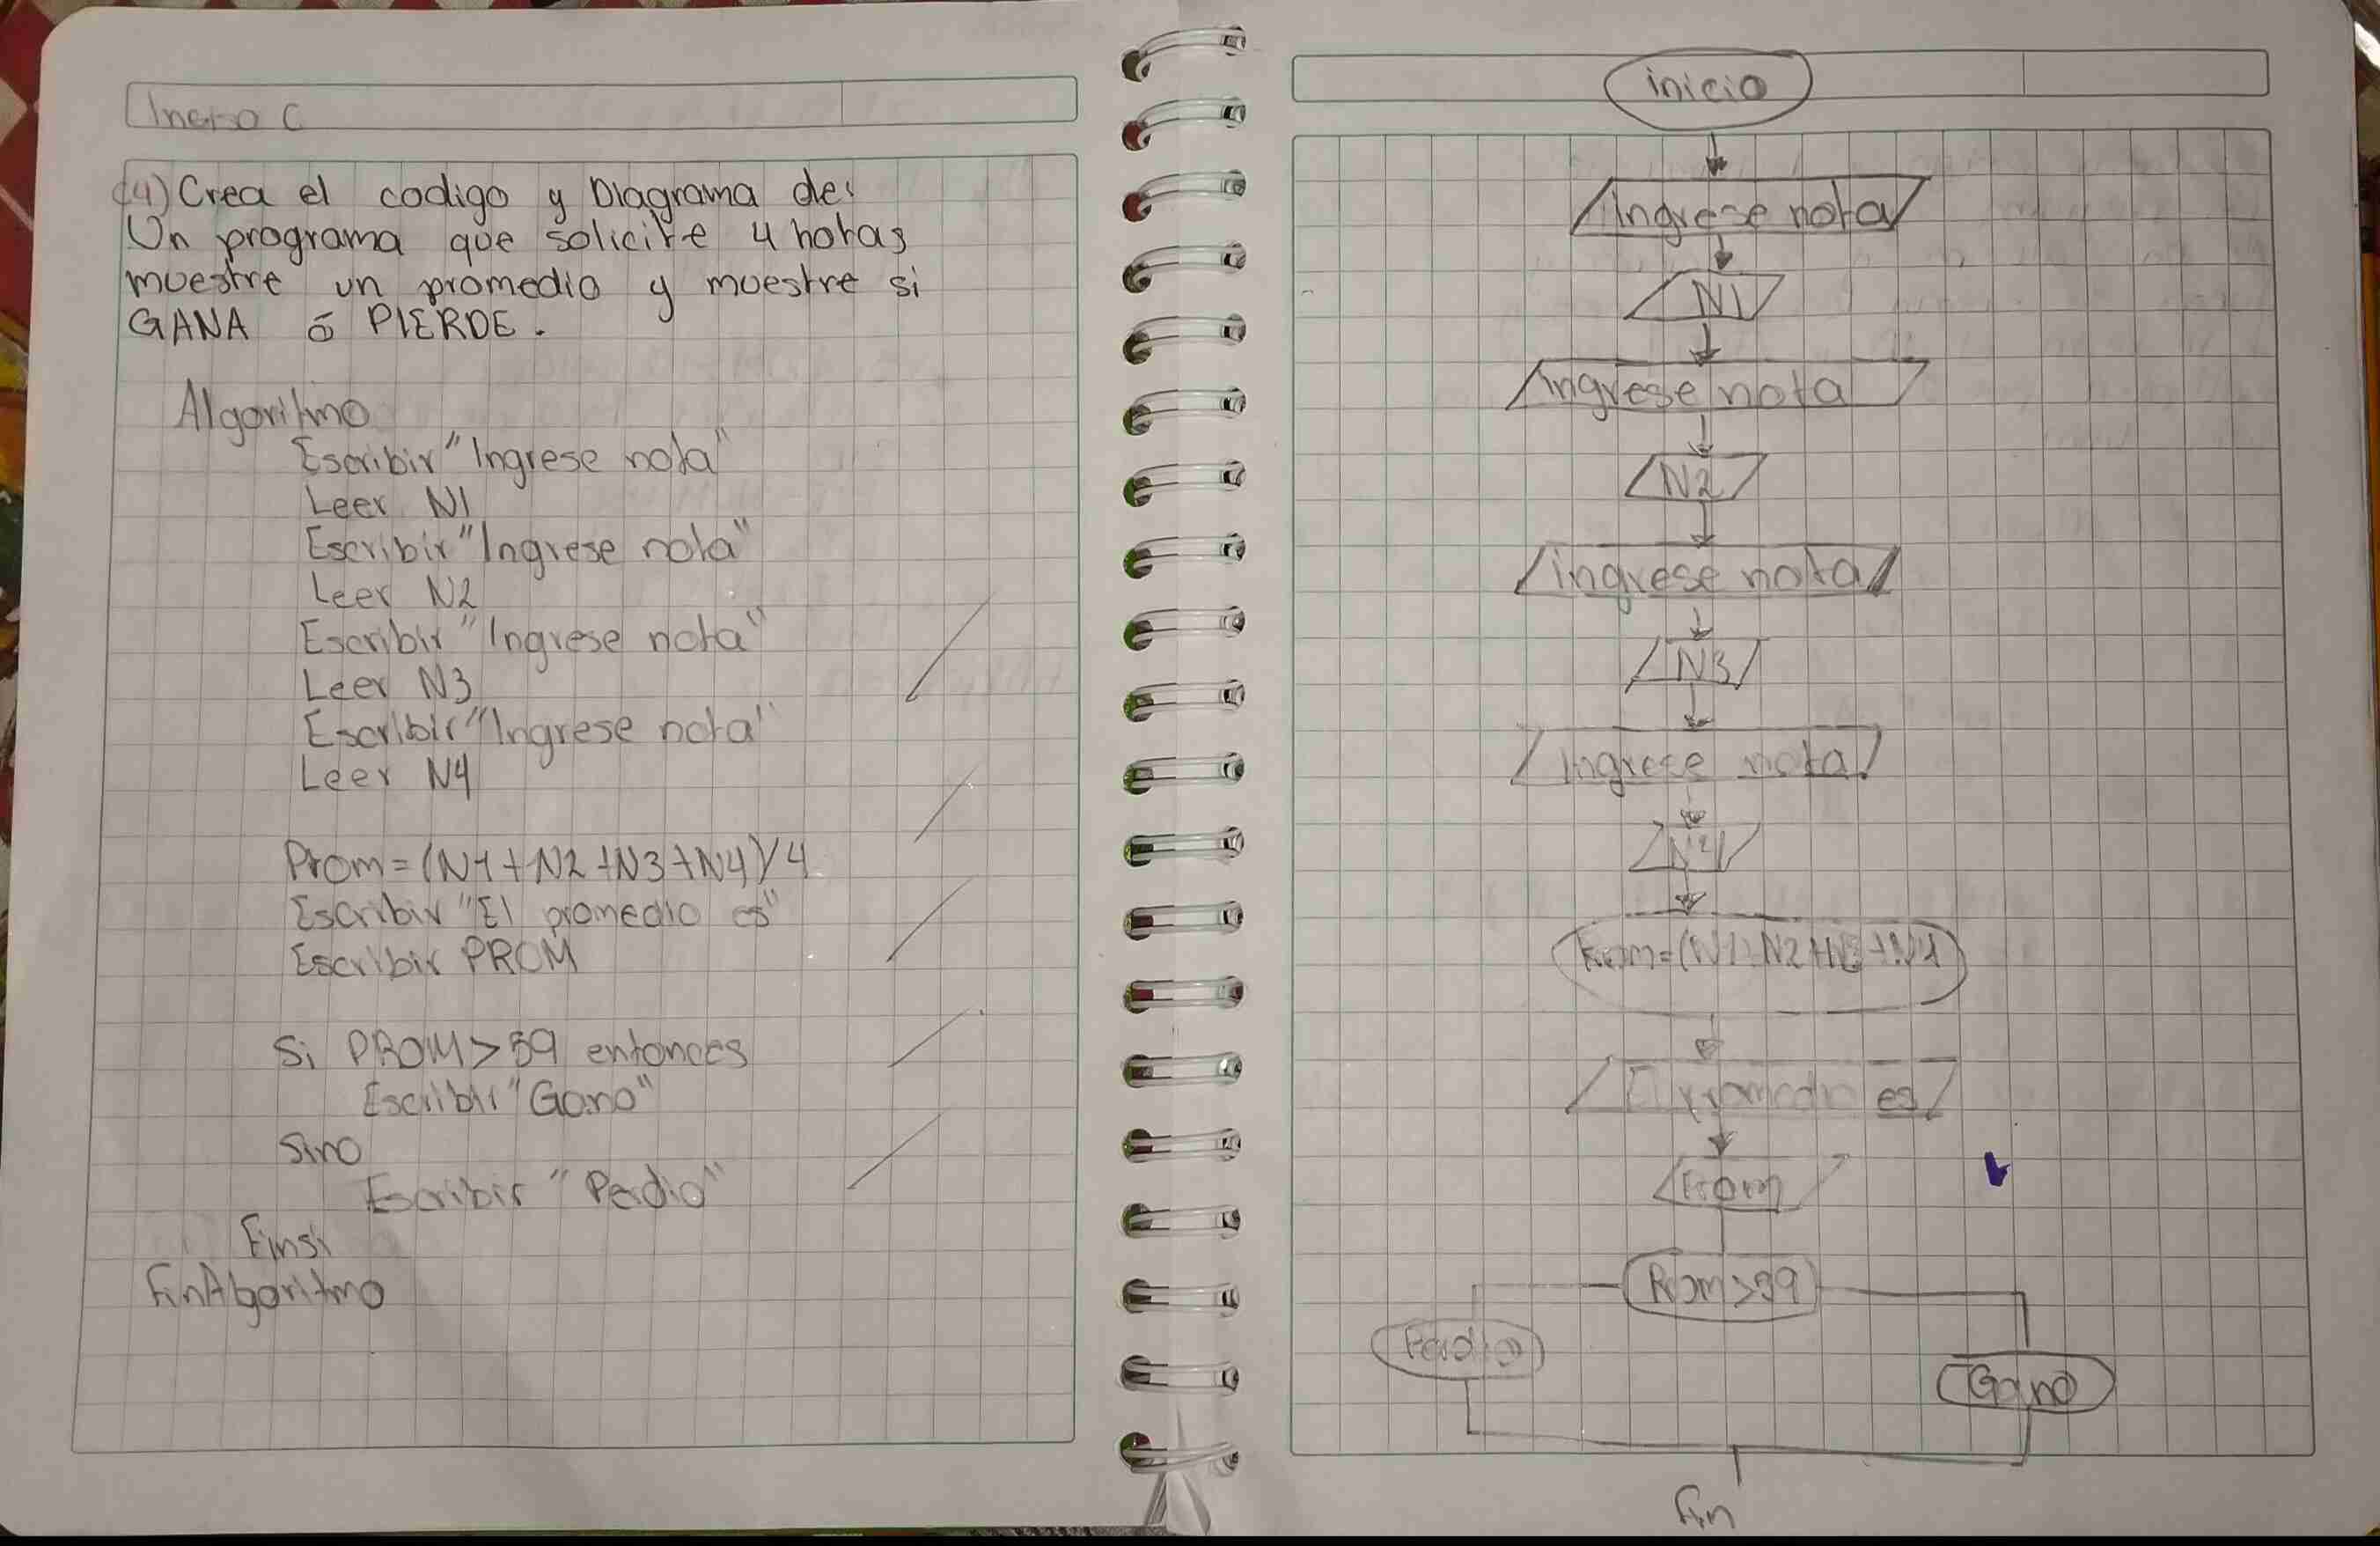 Inciso C
(4) Crea el codigo y Diagrama de:
Un programa que solicite 4 notas
muestre un promedio y muestre si
GANA ó PIERDE.
Algoritmo
Escribir "Ingrese nota"
Leer N1
Escribir "Ingrese nota"
Leer N2
Escribir "Ingrese nota"
Leer N3
Escribir "Ingrese nota"
Leer N4
Prom=(N1+N2+N3+N4)/4
Escribir "El promedio es"
Escribir PROM
Si PROM>59 entonces
Escribir "Gano"
Sino
Escribir "Perdio"
Finsi
FinAlgoritmo
inicio
Ingrese nota
N1
Ingrese nota
N2
ingrese nota
N3
Ingrese nota
N4
Prom=(N1+N2+N3+N4
El promedio es
Prom
Prom>59
Perdio
Gano
Fin